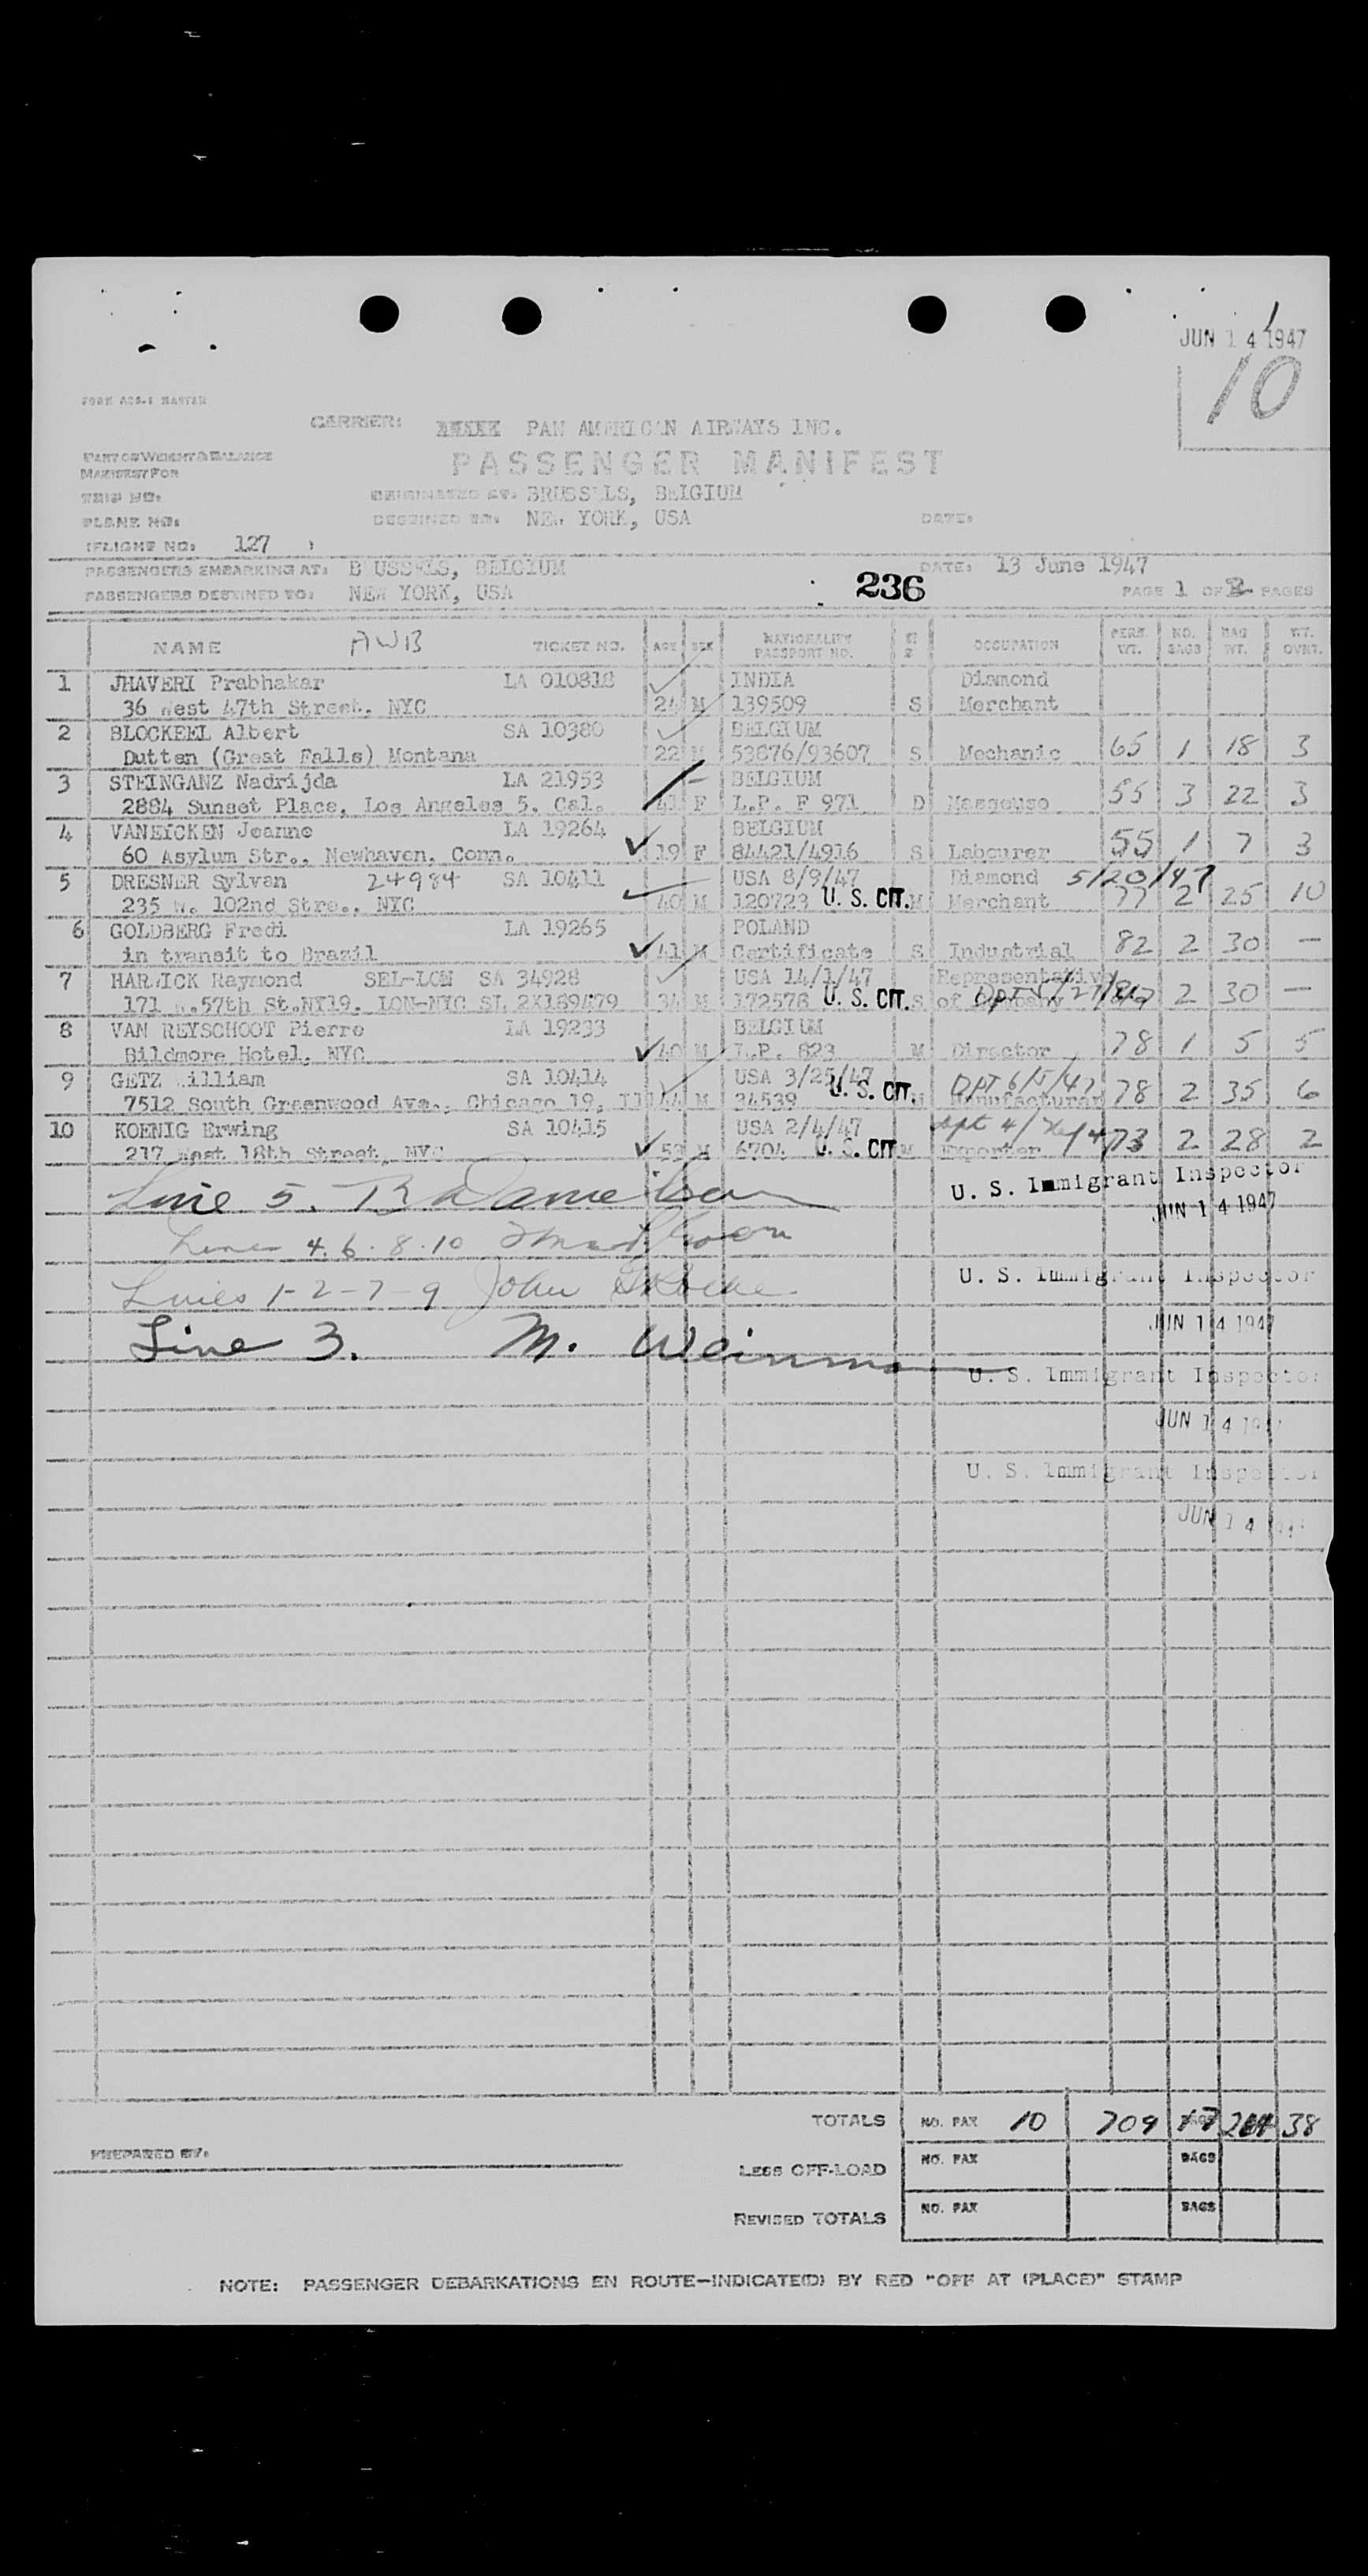 JUN 14 1947
10
FORM ACS-1 MASTER
CARRIER: PAN AMERICAN AIRWAYS INC.
PART OF WEIGHT & BALANCE
MANIFEST FOR
PASSENGER MANIFEST
TRIP NO:
ORIGINATED AT: BRUSSELS, BELGIUM
PLANE NO:
DESTINED TO: NEW YORK, USA
DATE:
(FLIGHT NO: 127 )
PASSENGERS EMBARKING AT: B USSELS, BELGIUM
DATE: 13 June 1947
PASSENGERS DESTINED TO: NEW YORK, USA
236
PAGE 1 OF 2 PAGES
NAME AWB TICKET NO. AGE SEX NATIONALITY PASSPORT NO. OCCUPATION PERS. WT. NO. BAGS BAG WT. WT. OVNT.
1 JHAVERI Prabhakar LA 010818 INDIA Diamond
36 West 47th Street. NYC 24 M 139509 S Merchant
2 BLOCKEEL Albert SA 10380 BELGIUM
Dutten (Great Falls) Montana 22 M 53876/93607 S Mechanic 65 1 18 3
3 STEINGANZ Nadrijda LA 21953 BELGIUM
2884 Sunset Place, Los Angeles 5. Cal. 41 F L.P. F 971 D Masseuse 55 3 22 3
4 VANEICKEN Jeanne LA 19264 BELGIUM
60 Asylum Str., Newhaven, Conn. 19 F 84421/4916 S Labourer 55 1 7 3
5 DRESNER Sylvan 24984 SA 10411 USA 8/9/47 Diamond 5/20/47
235 W. 102nd Stre., NYC 40 M 120723 U. S. CIT. M Merchant 77 2 25 10
6 GOLDBERG Fredi LA 19265 POLAND
in transit to Brazil 41 M Certificate S Industrial 82 2 30 —
7 HARWICK Raymond SEL-LON SA 34928 USA 14/1/47 Representativ
171 W.57th St.NY19. LON-NYC SL 2X189479 34 M 172578 U. S. CIT. S of Company 2 30 —
8 VAN REYSCHOOT Pierre LA 19233 BELGIUM
Bildmore Hotel, NYC 40 M L.P. 823 M Director 78 1 5 5
9 GETZ William SA 10414 USA 3/25/47 DPT 6/5/47
7512 South Greenwood Ave., Chicago 19, Il 44 M 24539 U. S. CIT. M Manufacturer 78 2 35 6
10 KOENIG Erwing SA 10415 USA 2/4/47
217 East 18th Street, NYC 53 M 6704 U. S. CIT M Exporter 73 2 28 2
Line 5.
U. S. Immigrant Inspector
JUN 14 1947
Lines 4.6.8.10
Lines 1-2-7-9 John
U. S. Immigrant Inspector
JUN 14 1947
Line 3. M. Weinman
U. S. Immigrant Inspector
JUN 14 194
U. S. Immigrant Inspector
JUN 14
TOTALS NO. PAX 10 709 17 38
PREPARED BY:
LESS OFF-LOAD NO. PAX BAGS
REVISED TOTALS NO. PAX BAGS
NOTE: PASSENGER DEBARKATIONS EN ROUTE—INDICATE(D) BY RED "OFF AT (PLACE)" STAMP